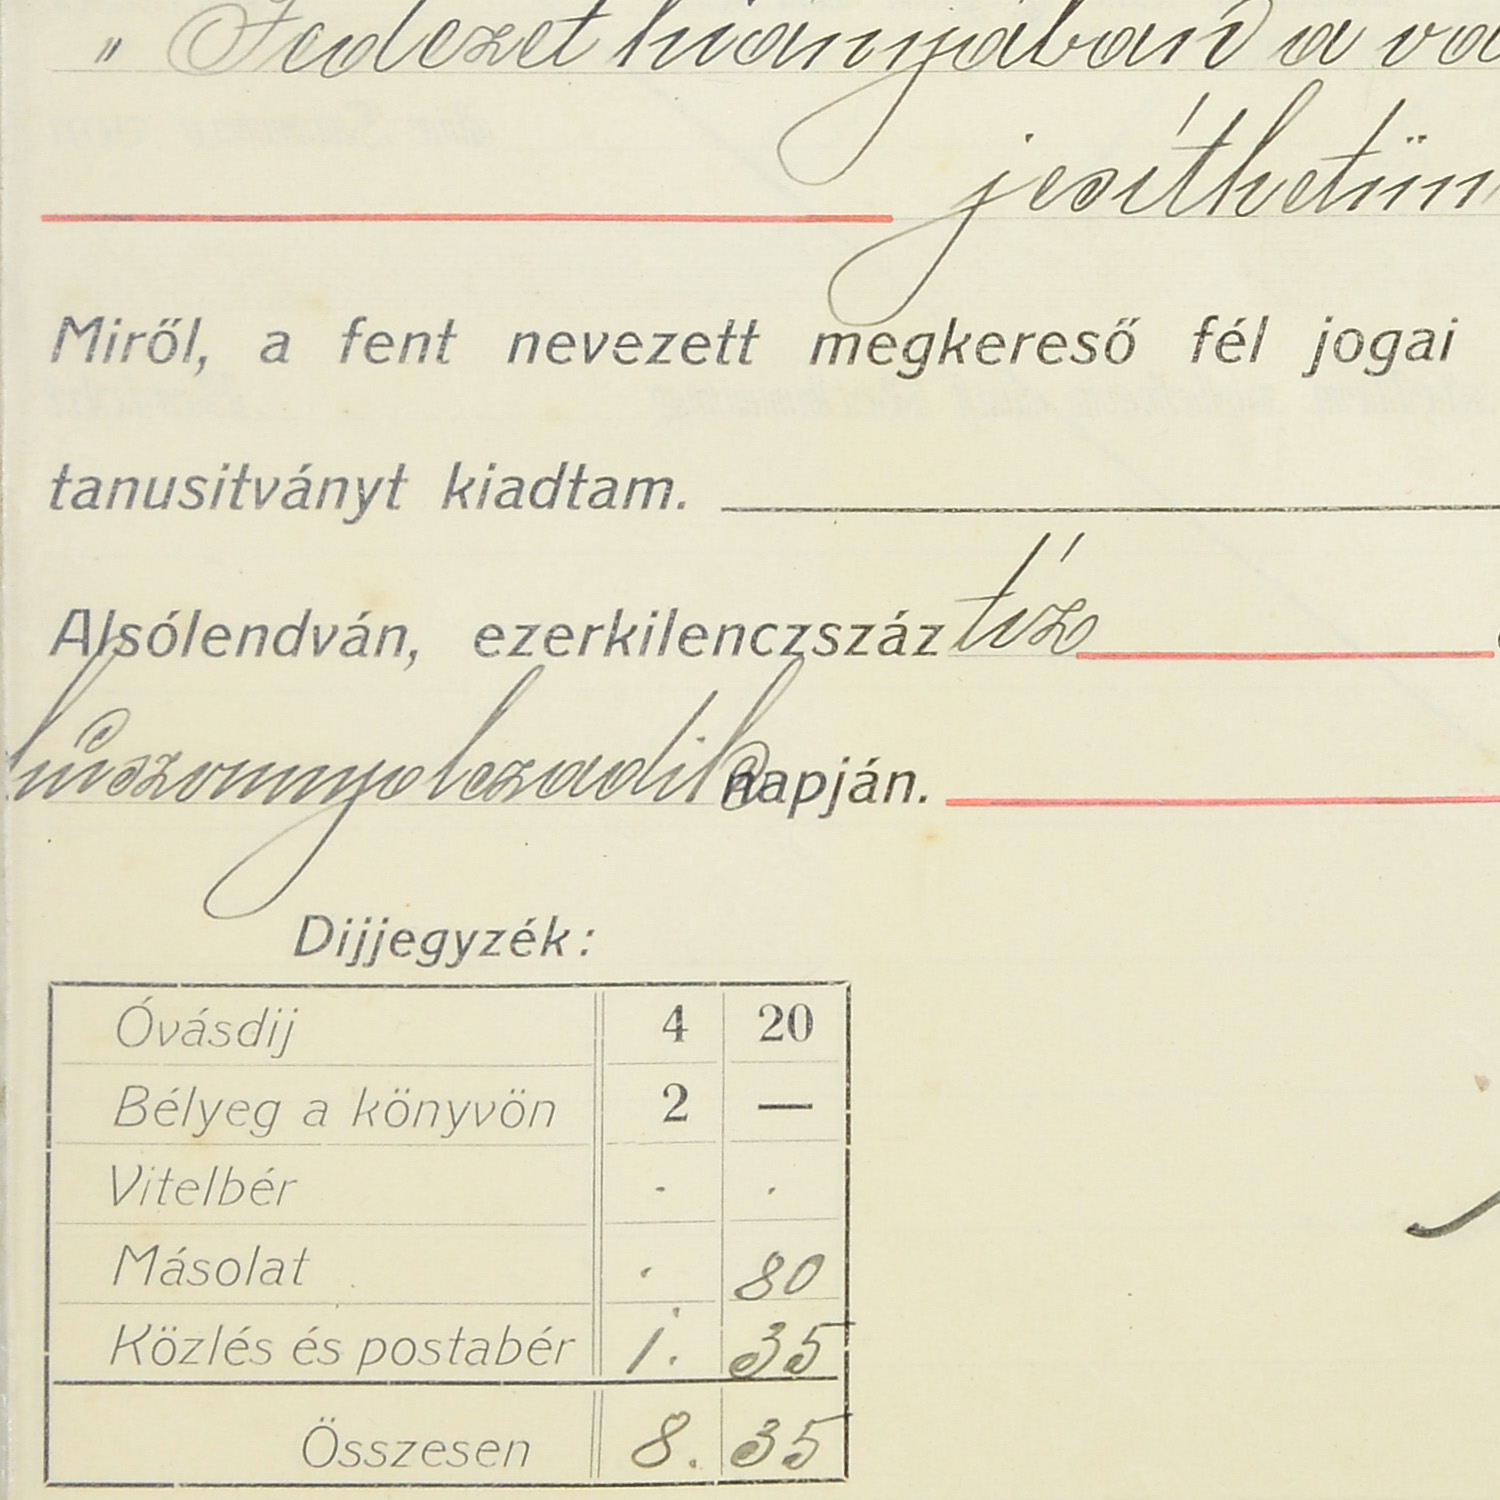 " Fedezet hiányában a
jesíthetün
Miről, a fent nevezett megkereső fél jogai
tanusitványt kiadtam.
Alsólendván, ezerkilenczszáz tíz
húszonnyolczadik napján.
Dijjegyzék:
Óvásdij 4 20
Bélyeg a könyvön 2 —
Vitelbér . .
Másolat . 80
Közlés és postabér 1. 35
Összesen 8. 35